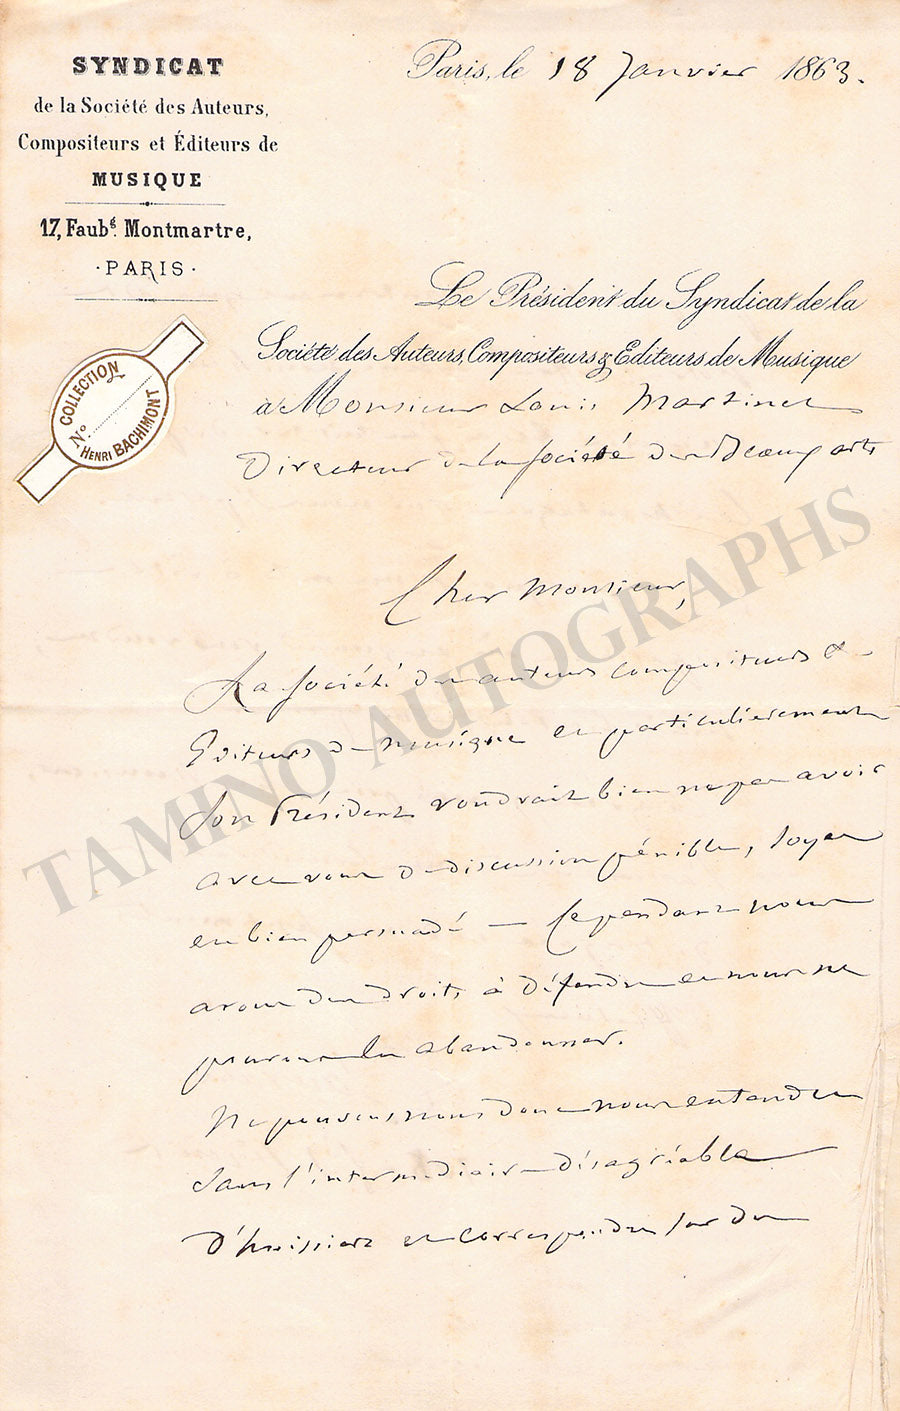 SYNDICAT
de la Société des Auteurs,
Compositeurs et Éditeurs de
MUSIQUE
17, Faubg. Montmartre,
· PARIS ·
Paris, le 18 Janvier 1863.
Le Président du Syndicat de la
Société des Auteurs, Compositeurs & Editeurs de Musique
à Monsieur Louis Martinet
Directeur de la société des Beaux arts
COLLECTION
No.
HENRI BACHIMONT
Cher Monsieur,
La société des auteurs compositeurs &
Editeurs de musique et particulièrement
son Président voudrait bien ne pas avoir
avec vous de discussion pénible, soyez
en bien persuadé — Cependant nous
avons des droits à défendre et nous ne
pouvons les abandonner.
Ne pouvons nous donc nous entendre
sans l'intermédiaire désagréable
d'huissiers et correspondre sur du
TAMINO AUTOGRAPHS